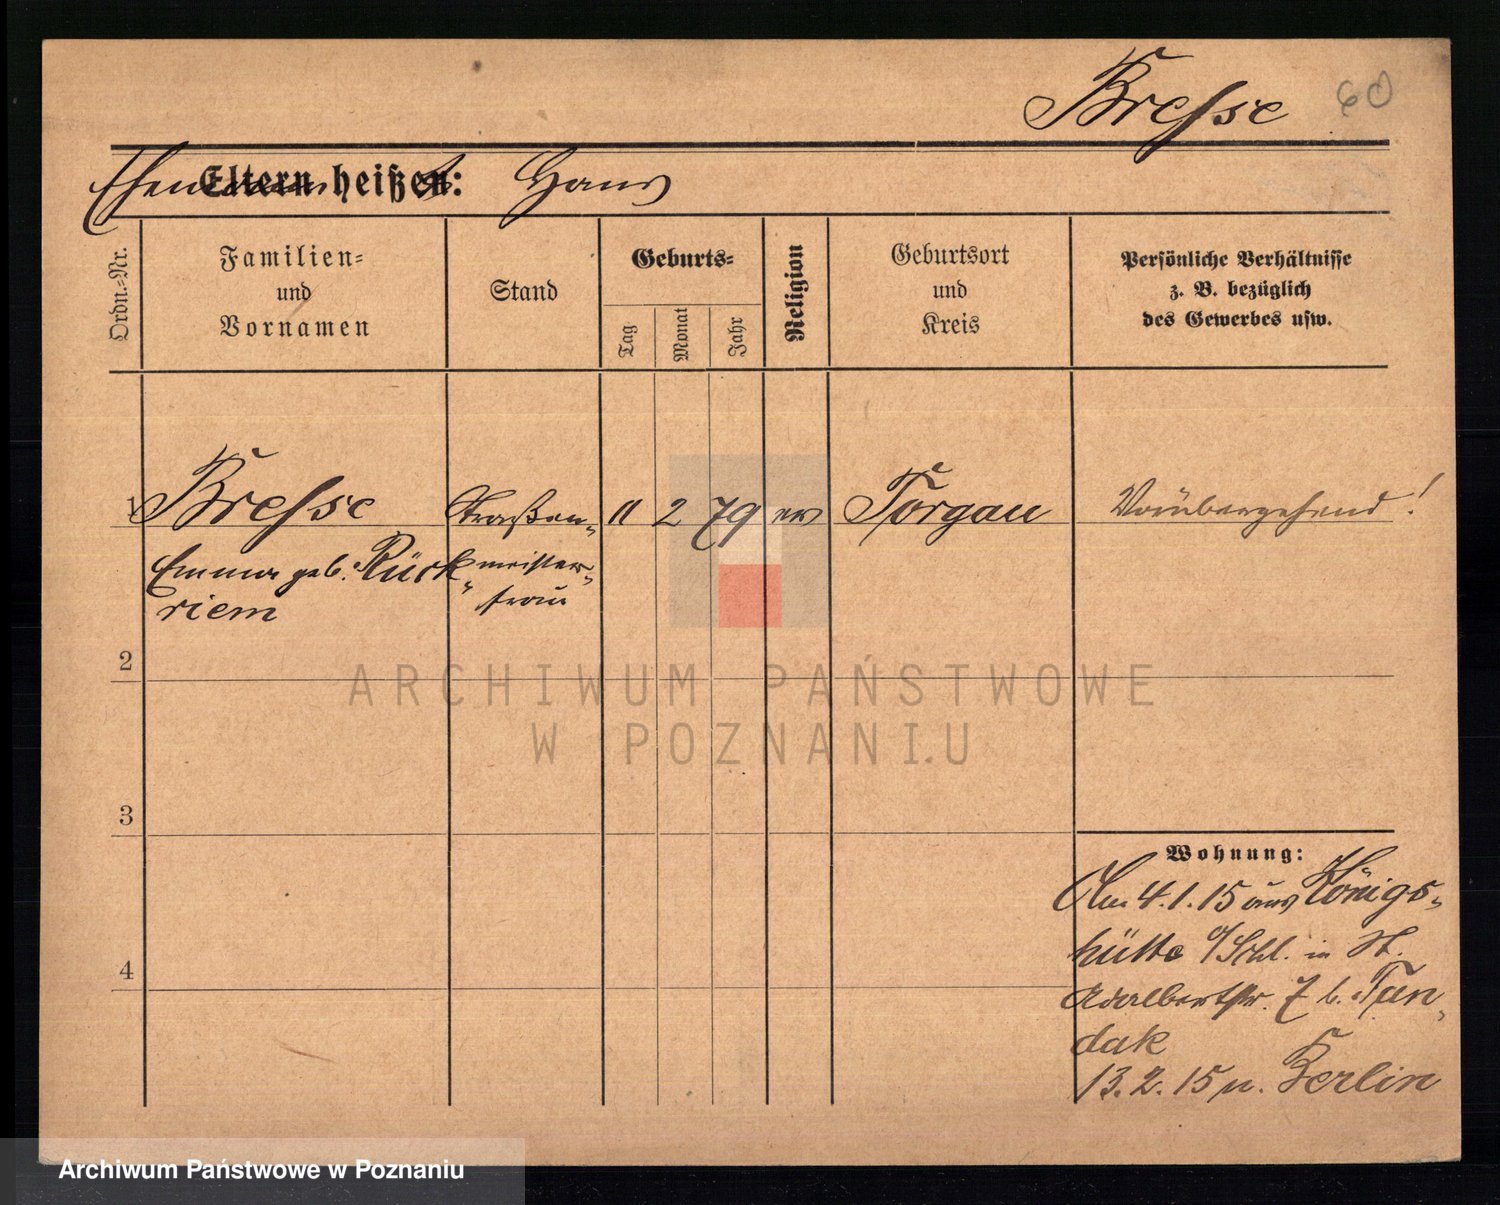 Bresse 60
Ehemann heißt: Hans
Eltern heißen:
Ordn.-Nr.
Familien-
und
Vornamen
Stand
Geburts-
Tag
Monat
Jahr
Religion
Geburtsort
und
Kreis
Persönliche Verhältnisse
z. B. bezüglich
des Gewerbes usw.
1 Bresse Straßen- 11 2 79 ev Torgau Vorübergehend!
Emma geb. Rück- meister-
riem frau
2
ARCHIWUM PAŃSTWOWE
W POZNANIU
3
Wohnung:
Am 4.1.15 aus Königs-
hütte O/Schl. in St.
4
Adalbertstr. 7 b. Tan-
dak
13.2.15 n. Berlin
Archiwum Państwowe w Poznaniu